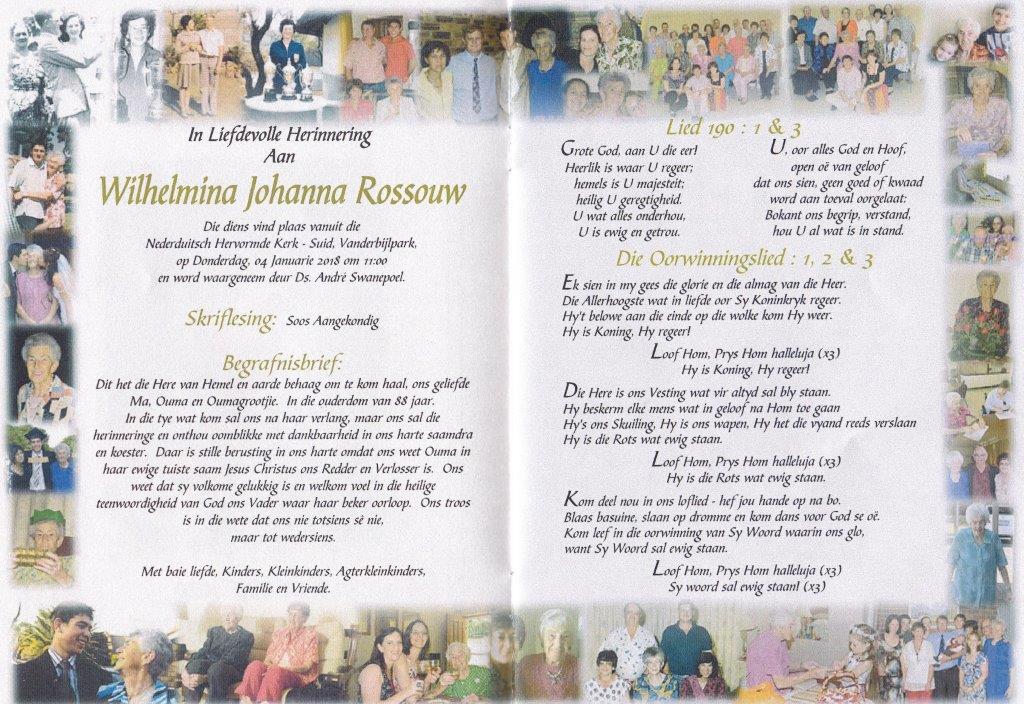 In Liefdevolle Herinnering
Aan
Wilhelmina Johanna Rossouw
Die diens vind plaas vanuit die
Nederduitsch Hervormde Kerk - Suid, Vanderbijlpark,
op Donderdag, 04 Januarie 2018 om 11:00
en word waargeneem deur Ds. André Swanepoel.
Skriflesing: Soos Aangekondig
Begrafnisbrief:
Dit het die Here van Hemel en aarde behaag om te kom haal, ons geliefde
Ma, Ouma en Oumagrootjie. In die ouderdom van 88 jaar.
In die tye wat kom sal ons na haar verlang, maar ons sal die
herinneringe en onthou oomblikke met dankbaarheid in ons harte saamdra
en koester. Daar is stille berusting in ons harte omdat ons weet Ouma in
haar ewige tuiste saam Jesus Christus ons Redder en Verlosser is. Ons
weet dat sy volkome gelukkig is en welkom voel in die heilige
teenwoordigheid van God ons Vader waar haar beker oorloop. Ons troos
is in die wete dat ons nie totsiens sê nie,
maar tot wedersiens.
Met baie liefde, Kinders, Kleinkinders, Agterkleinkinders,
Familie en Vriende.
Lied 190 : 1 & 3
Grote God, aan U die eer!
Heerlik is waar U regeer;
hemels is U majesteit;
heilig U geregtigheid.
U wat alles onderhou,
U is ewig en getrou.
U, oor alles God en Hoof,
open oë van geloof
dat ons sien, geen goed of kwaad
word aan toeval oorgelaat:
Bokant ons begrip, verstand,
hou U al wat is in stand.
Die Oorwinningslied : 1, 2 & 3
Ek sien in my gees die glorie en die almag van die Heer.
Die Allerhoogste wat in liefde oor Sy Koninkryk regeer.
Hy't belowe aan die einde op die wolke kom Hy weer.
Hy is Koning, Hy regeer!
Loof Hom, Prys Hom halleluja (x3)
Hy is Koning, Hy regeer!
Die Here is ons Vesting wat vir altyd sal bly staan.
Hy beskerm elke mens wat in geloof na Hom toe gaan
Hy's ons Skuiling, Hy is ons wapen, Hy het die vyand reeds verslaan
Hy is die Rots wat ewig staan.
Loof Hom, Prys Hom halleluja (x3)
Hy is die Rots wat ewig staan.
Kom deel nou in ons loflied - hef jou hande op na bo.
Blaas basuine, slaan op dromme en kom dans voor God se oë.
Kom leef in die oorwinning van Sy Woord waarin ons glo,
want Sy Woord sal ewig staan.
Loof Hom, Prys Hom halleluja (x3)
Sy woord sal ewig staan! (x3)